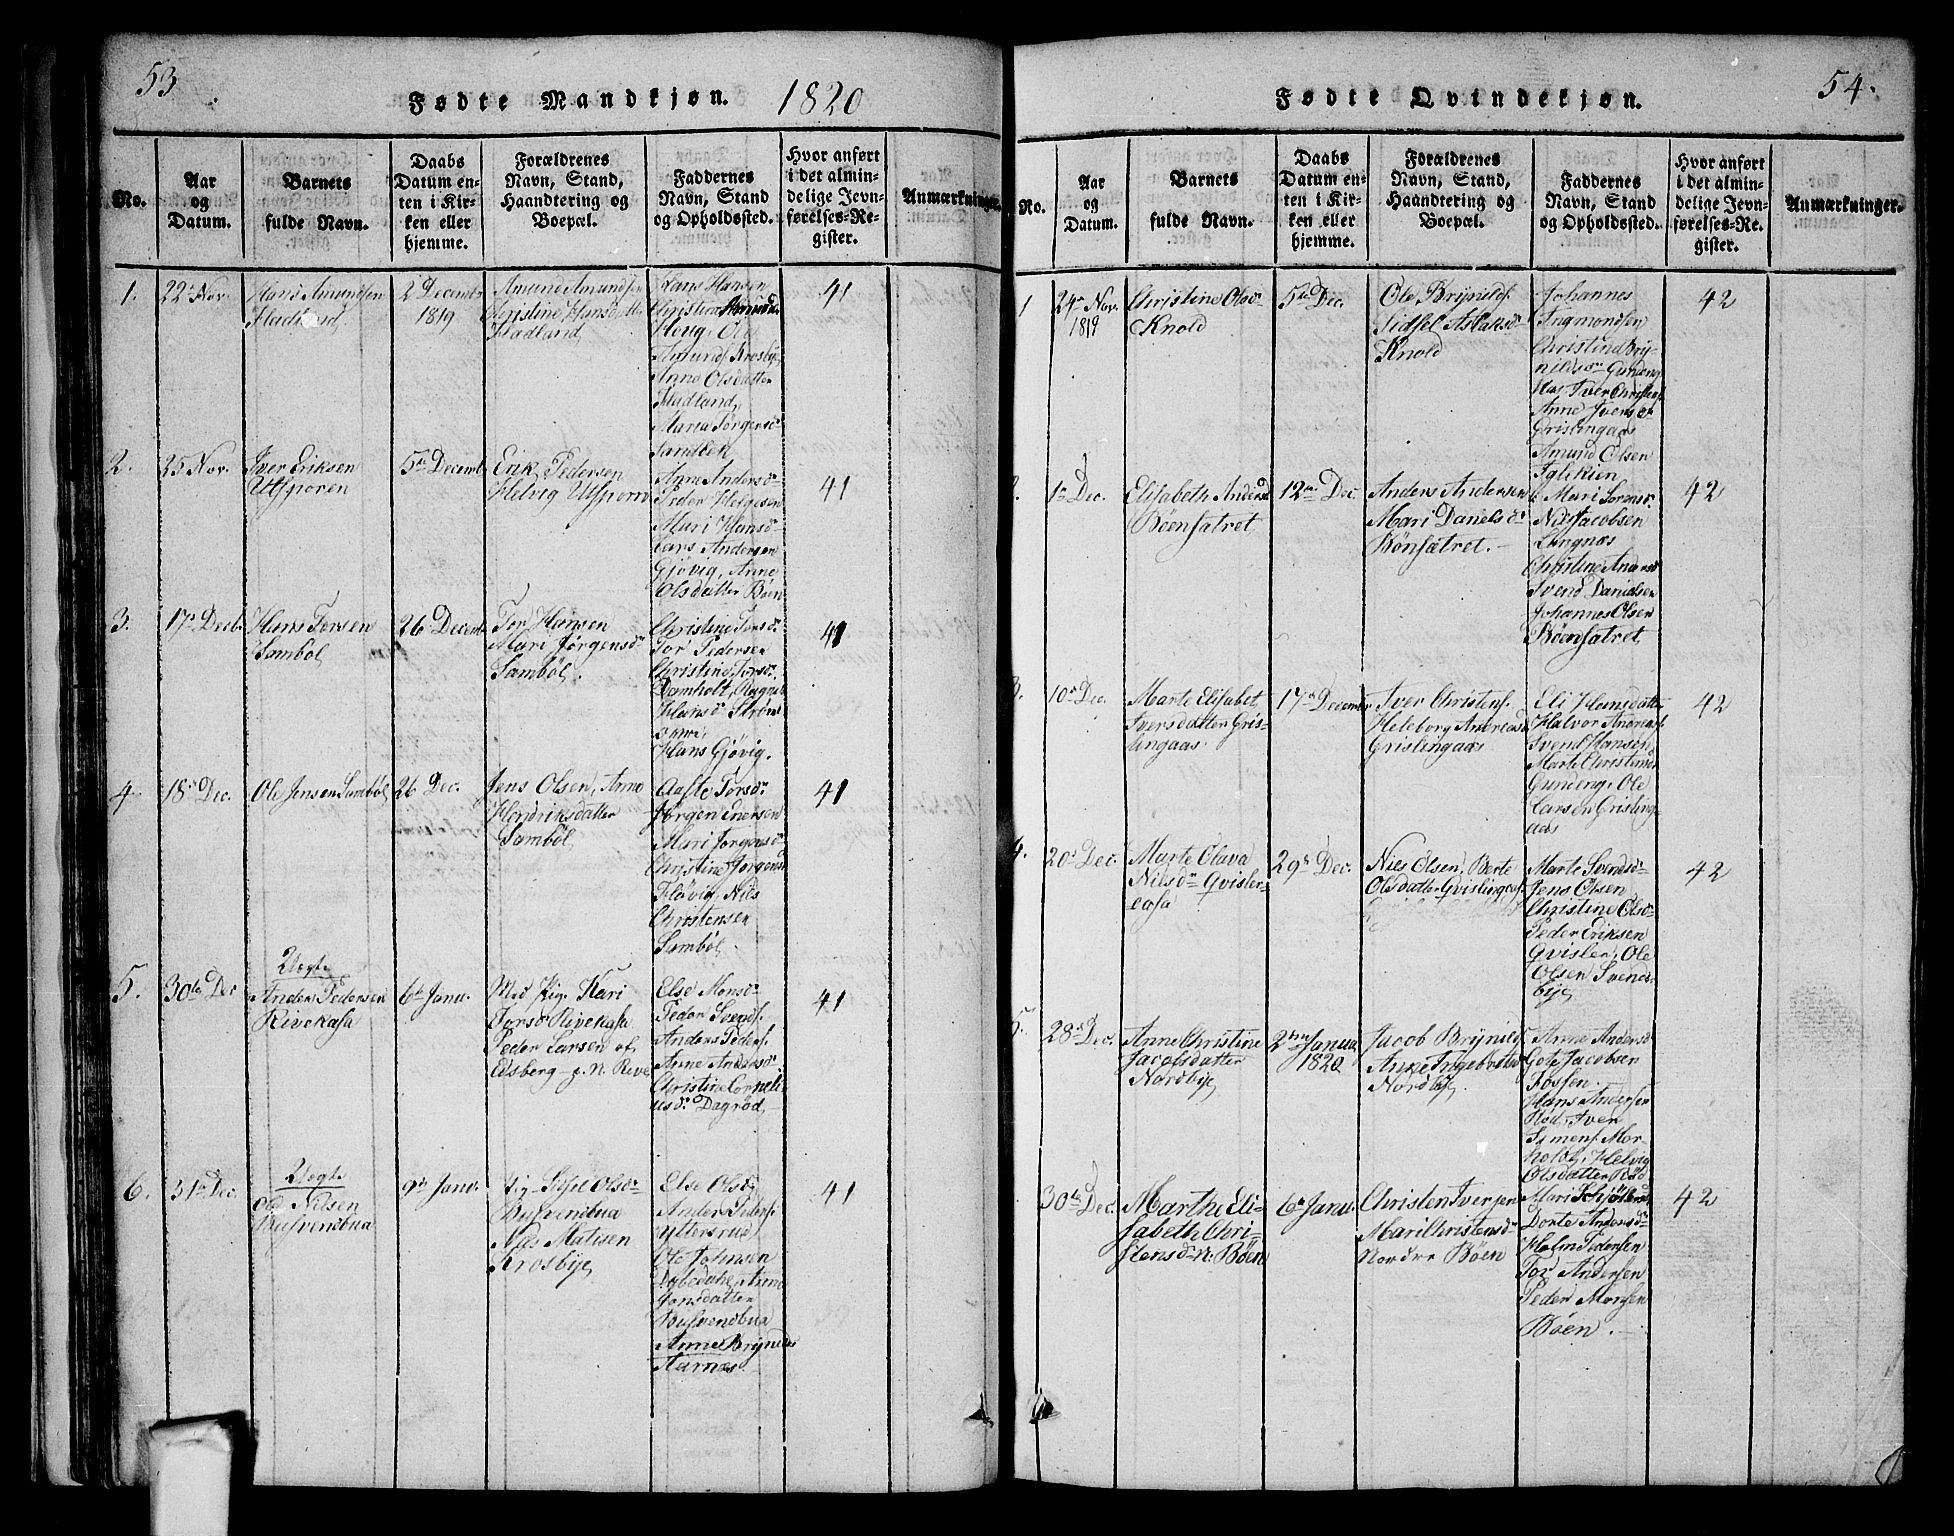 53
Fødte Mandkjøn.
1820
No.
Aar
og
Datum.
Barnets
fulde Navn.
Daabs
Datum en-
ten i Kir-
ken eller
hjemme.
Forældrenes
Navn, Stand,
Haandtering og
Boepæl.
Faddernes
Navn, Stand
og Opholdssted.
Hvor anført
i det almin-
delige Jevn-
førelses-Re-
gister.
Anmærkninger.
1.
22de Nov.
Hans Amundsen
Hadland
2 Decembr
1819
Amund Amundsen
Christine Hansdatter
Hadland
Hans Hansen
Christine
Haug, Ole
Amunds. Krosbye
Anne Olsdatter
Hadland,
Maria Jørgensdr
Sandbek
41
2.
25 Nov.
Iver Eriksen
Utsporen
5te Decemb
Erik Pedersen
Helvig Utsporn
Anne Andersdr
Peder Helgesen
Mari Hansdr
Lars Andersen
Gjövig, Anne
Olsdatter Böen
41
3.
17de Decb.
Hans Torsen
Sambol
26 Decemb.
Tor Hansen
Mari Jörgensdr
Samböl.
Christine Torsdr
Tor Pedersen
Christine Torsdr.
Damholt, Ragnil
Hansdr Ström
Hans Gjövig.
41
4
18de Dec.
Ole Jensen Samböl
26 Dec.
Jens Olsen, Anne
Hendriksdatter
Samböl
Aaste Torsdr
Jörgen Enersen
Mari Jörgensdr
Christine Jörgensdr
Flövig, Nils
Christensen
Samböl.
41
5.
30te Dec
Uægte
Anders Pedersen
Rivekasa
6te Janu.
Mod. Pig. Kari
Torsdr Rivekasa
Peder Larsen of
Edsberg p. n. Rive
Else Monsdr
Peder Svends.
Anders Peders.
Anne Andersdr
Christine Corneli
usdr. Dagröd
41
6.
31te Dec.
Uægte
Ole Nilsen
Busvendbua
9de Janu.
Pig. Olsdr
Busvendbua
Nils Matisen
Krosbye
Else Olsdr
Anders Peders.
Yttersrud
Ole Johnsen
Dybedahl, Anne
Jonsdatter
Busvendbua
Anne Brynilds
Aarnes
41
54.
Fødte Qvindekjøn.
No.
Aar
og
Datum.
Barnets
fulde Navn.
Daabs
Datum en-
ten i Kir-
ken eller
hjemme.
Forældrenes
Navn, Stand,
Haandtering og
Boepæl.
Faddernes
Navn, Stand
og Opholdssted.
Hvor anført
i det almin-
delige Jevn-
førelses-Re-
gister.
Anmærkninger.
1
24de Nov.
1819
Christine Olsdr
Knold
5te Dec.
Ole Brynilds.
Sidsel Aslaksdr
Knold
Johannes
Ingmondsen
Christine Bry-
nildsdr Gundeng
Iver Christens.
Anne Iversdr
Grislingaas
Amund Olsen
42
2.
1te Dec.
Elisabeth Andersd
Böensatret
12te Dec.
Anders Andersen
Mari Danelsdr
Bönsætret.
Mari Sørensdr
Niels Jacobsen
Lungnæs
Christine Andersdr
Svend Danielsen
Johannes Olsen
Böensatret
42
3.
10de Dec.
Marte Elisabet
Iversdatter Gris-
lingaas
17de Decembr
Iver Christens.
Heleborg Andreasdr
Grislingaas
Eli Hansdatter
Halvor Andreas.
Svend Hansen
Marte Christensd
Gundeng, Ole
Larsen Grisling-
aas
42
4.
20de Dec.
Marte Olava
Nilsdr Qvisler-
casa
29de Dec.
Niels Olsen, Berte
Olsdatter Qvislingcas.
Marte Svendsdr
Jens Olsen
Christine Olsdr
Peder Eriksen
Qvisler, Ole
Olsen Svends-
bye
42
5.
28de Dec.
Anne Christine
Jacobsdatter
Nordbye
2den Janua
1820
Jacob Brynilds
Anne Ingebretsd
Nordbye
Anne Andersdr
Gote Jacobsen
Fossen
Hans Andersen
Röd, Iver
Simens. Mor-
holdt, Helvig
Olsdatter Röd
30te Dec.
Marthe Eli-
sabeth Chri-
stensdr n. Böen
6te Janu.
Christen Iversen
Mari Christensdr
Nordre Böen
Mari
Dorte Andersdr
Holm Pedersen
Tor Andersen
Peder Monsen
Böen.
42